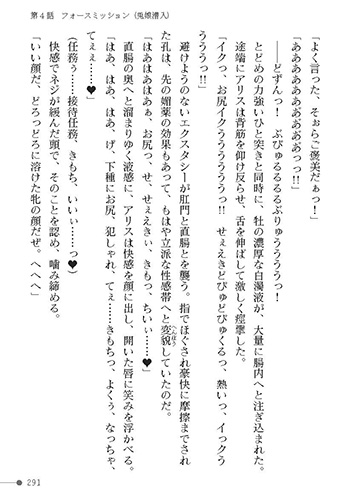 第4話 フォースミッション(兎娘潜入)
「よく言った、そぉらご褒美だぁっ!」
「ああああああああぁっっ!!」
――どずんっ! ぶぴゅるるるるぶりゅううううっ!
とどめの力強いひと突きと同時に、牡の濃厚な白濁液が、大量に腸内へと注ぎ込まれた。
途端にアリスは背筋を仰け反らせ、舌を伸ばして激しく痙攣した。
「イクっ、お尻イクうううううっ!! せぇえきどぴゅどぴゅくるっ、熱いっ、イっクう
うううっ!!」
避けようのないエクスタシーが肛門と直腸とを襲う。指でほぐされ豪快に摩擦までされ
た孔は、先の媚薬の効果もあって、もはや立派な性感帯へと変貌していたのだ。
へんぼう
「はあはあはぁぁ、お尻っ、せ、せぇえきぃ、きもっ、ちいぃ……っ♥」
直腸の奥へと溜まりゆく液感に、アリスは快感を顔に出し、開いた唇に笑みを浮かべる。
「はあ、はあ、はあ、げ、下種にお尻、犯しゃれ、てぇ……きもちっ、よくぅ、なっちゃ、
てぇぇ……♥」
(任務ぅ……接待任務、きもち、いいぃ……っ♥)
快感でネジが緩んだ頭で、そのことを認め、噛み締める。
「いい顔だ、どろっどろに溶けた牝の顔だぜ。へへへ」
291